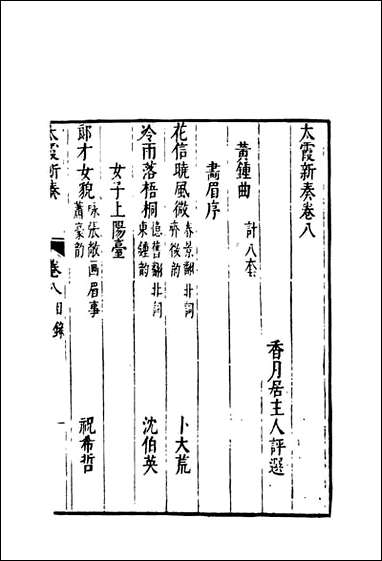 太霞新奏卷八
香月居主人評選
黃鍾曲　計八套
畵眉序
花信曉風微　春景翻北詞　卜大荒
齊微韵
冷雨落梧桐　憶舊翻北詞　沈伯英
東鍾韵
女子上陽臺
郎才女貌　咏張敞画眉事　祝希哲
蕭豪韵
太霞新奏　卷八目錄　一